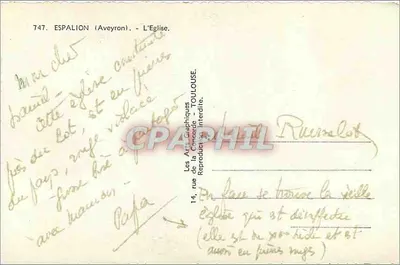 747. ESPALION (Aveyron). - L'Eglise.
mon cher
Daniel -
Cette église construite
près du Lot, est en pierres
du pays, rouge violacé
avec maman.
Papa
Les Arts Graphiques
14, rue de la Concorde - TOULOUSE.
Reproduction interdite.
CPARPHIL
En face se trouve la vieille
église qui est désaffectée
(elle est du XVe siècle et est
aussi en pierres rouges)